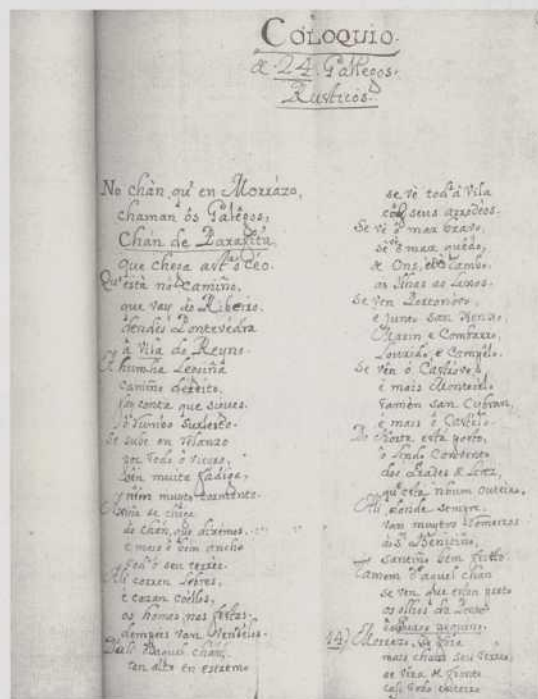 COLOQUIO.
de 24. Gallegos.
Rusticos.
No chán, qu' en Morrázo,
chaman ôs Galêgos,
Chán de Parafita,
que chega ast' ò céo.
Qu' està nò camiño,
que vay do Ribeiro.
dendes Pontevedra
à Vila do Reyno.
A humha Leguiña
camiño dereito,
Se sube en
por todo ò
bèn muita fadiga,
y nèn muyto tormento.
se chega
do chán, que diremos.
e mais è bèn ancho
tod' ò seu terreo.
Ali corren Lebres,
e cazan coêllos,
os homes nas festas.
dempois van Vendêlos.
Dali daquel chán,
tan alto en estremo
se vè tod' â Vila
côs seus arredóos.
Se vè ò mar bravo,
se vè ò mar quêdo,
de Ons, e Tambo.
as Ilhas ao Lexos.
Se ven Portonovo,
e junto san Xenxo,
Marin e Combarro,
Lourido, e Campêlo.
Se vèn ò Castrove,
è mais
tamèn san Cybran,
e mais ò Castelo.
De Norte està perto,
o lindo Convento
dos Frades de Lerez,
qu' està nhum Outeiro.
Ali donde sempre
van muytos Romeiros
ao Sn. Benitiño,
santiño bèn feito.
Tamèn d' aquel chan
se ven que estan preto
os olhos da Ponte
14)
mais chaus seu Terreo,
de fronte